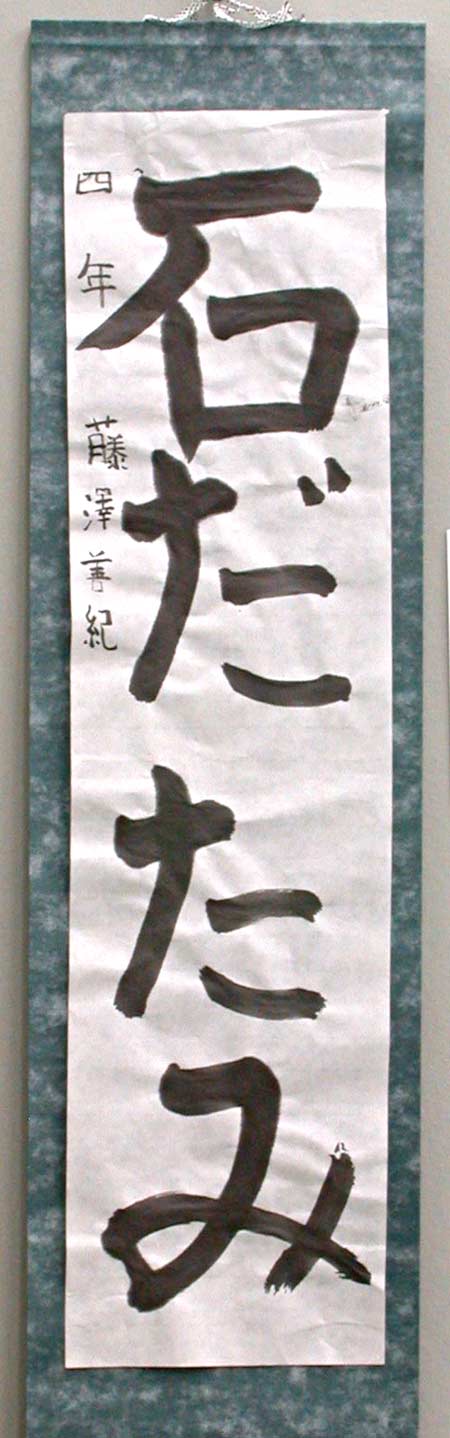 石だたみ
四年 藤澤善紀